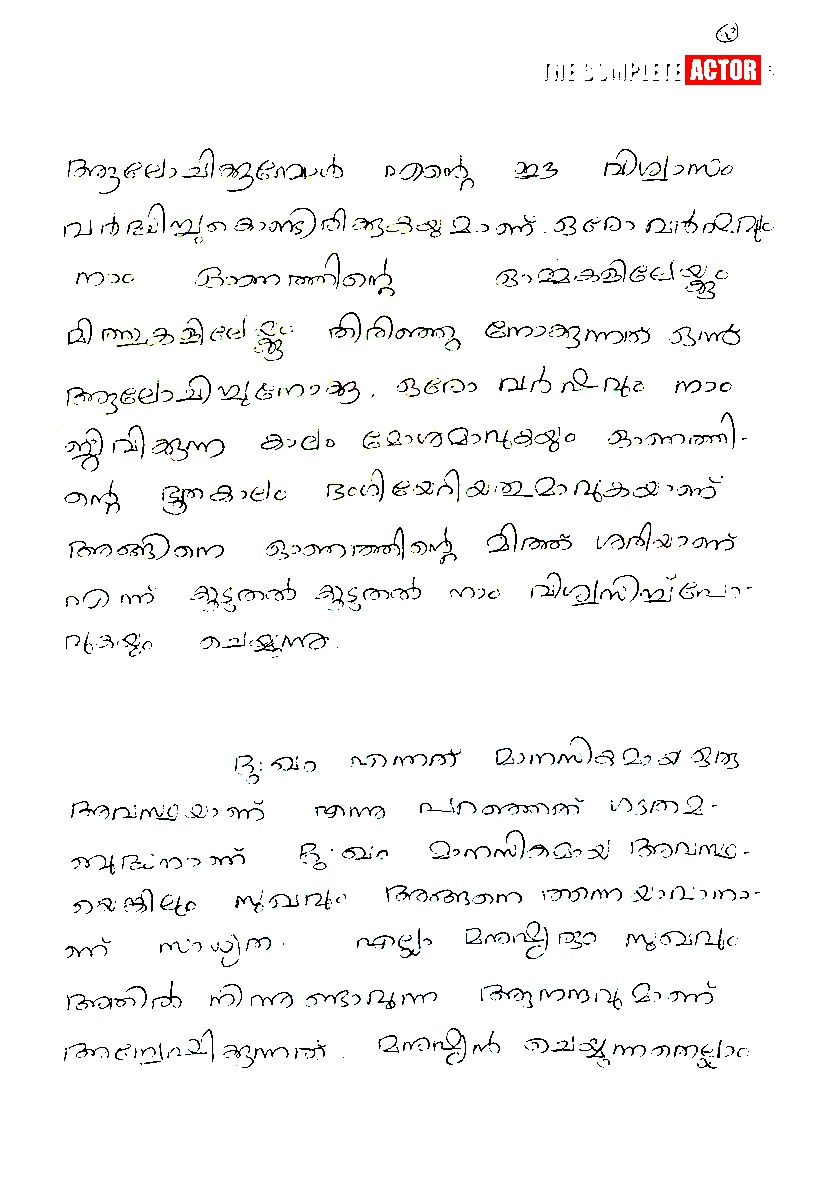 THE COMPLETE ACTOR
ആലോചിക്കുമ്പോൾ എന്റെ ഈ വിശ്വാസം
വർദ്ധിച്ചുകൊണ്ടിരിക്കുകയുമാണ്. ഓരോ വർഷവും
നാം ഓണത്തിന്റെ ഓർമ്മകളിലേയ്ക്കും
മിത്തുകളിലേയ്ക്കും തിരിഞ്ഞു നോക്കുന്നത് ഒന്ന്
ആലോചിച്ചുനോക്കൂ. ഓരോ വർഷവും നാം
ജീവിക്കുന്ന കാലം മോശമാവുകയും ഓണത്തി-
ന്റെ ഭൂതകാലം ഭംഗിയേറിയതുമാവുകയാണ്
അങ്ങിനെ ഓണത്തിന്റെ മിത്ത് ശരിയാണ്
എന്ന് കൂടുതൽ കൂടുതൽ നാം വിശ്വസിച്ച്പോ-
വുകയും ചെയ്യുന്നു.
ദുഃഖം എന്നത് മാനസികമായ ഒരു
അവസ്ഥയാണ് എന്നു പറഞ്ഞത് ഗൗതമ-
ബുദ്ധനാണ് ദുഃഖം മാനസികമായ അവസ്ഥ-
യെങ്കിലും സുഖവും അങ്ങനെ തന്നെയാവാനാ-
ണ് സാധ്യത. എല്ലാ മനുഷ്യരും സുഖവും
അതിൽ നിന്നുണ്ടാവുന്ന ആനന്ദവുമാണ്
അന്വേഷിക്കുന്നത്. മനുഷ്യൻ ചെയ്യുന്നതെല്ലാം